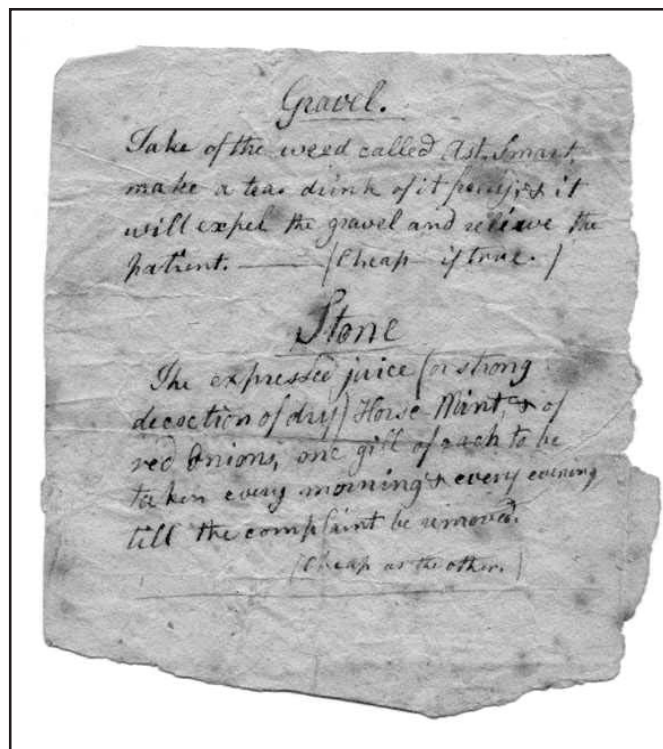 Gravel.
Take of the weed called Ast. Smart,
make a tea drink of it freely, & it
will expel the gravel and relieve the
patient. —— (Cheap if true.)
Stone
The expressed juice (or strong
decoction of dry) Horse Mint, & of
red Onions, one gill of each to be
taken every morning & every evening
till the complaint be removed.
(Cheap as the other.)